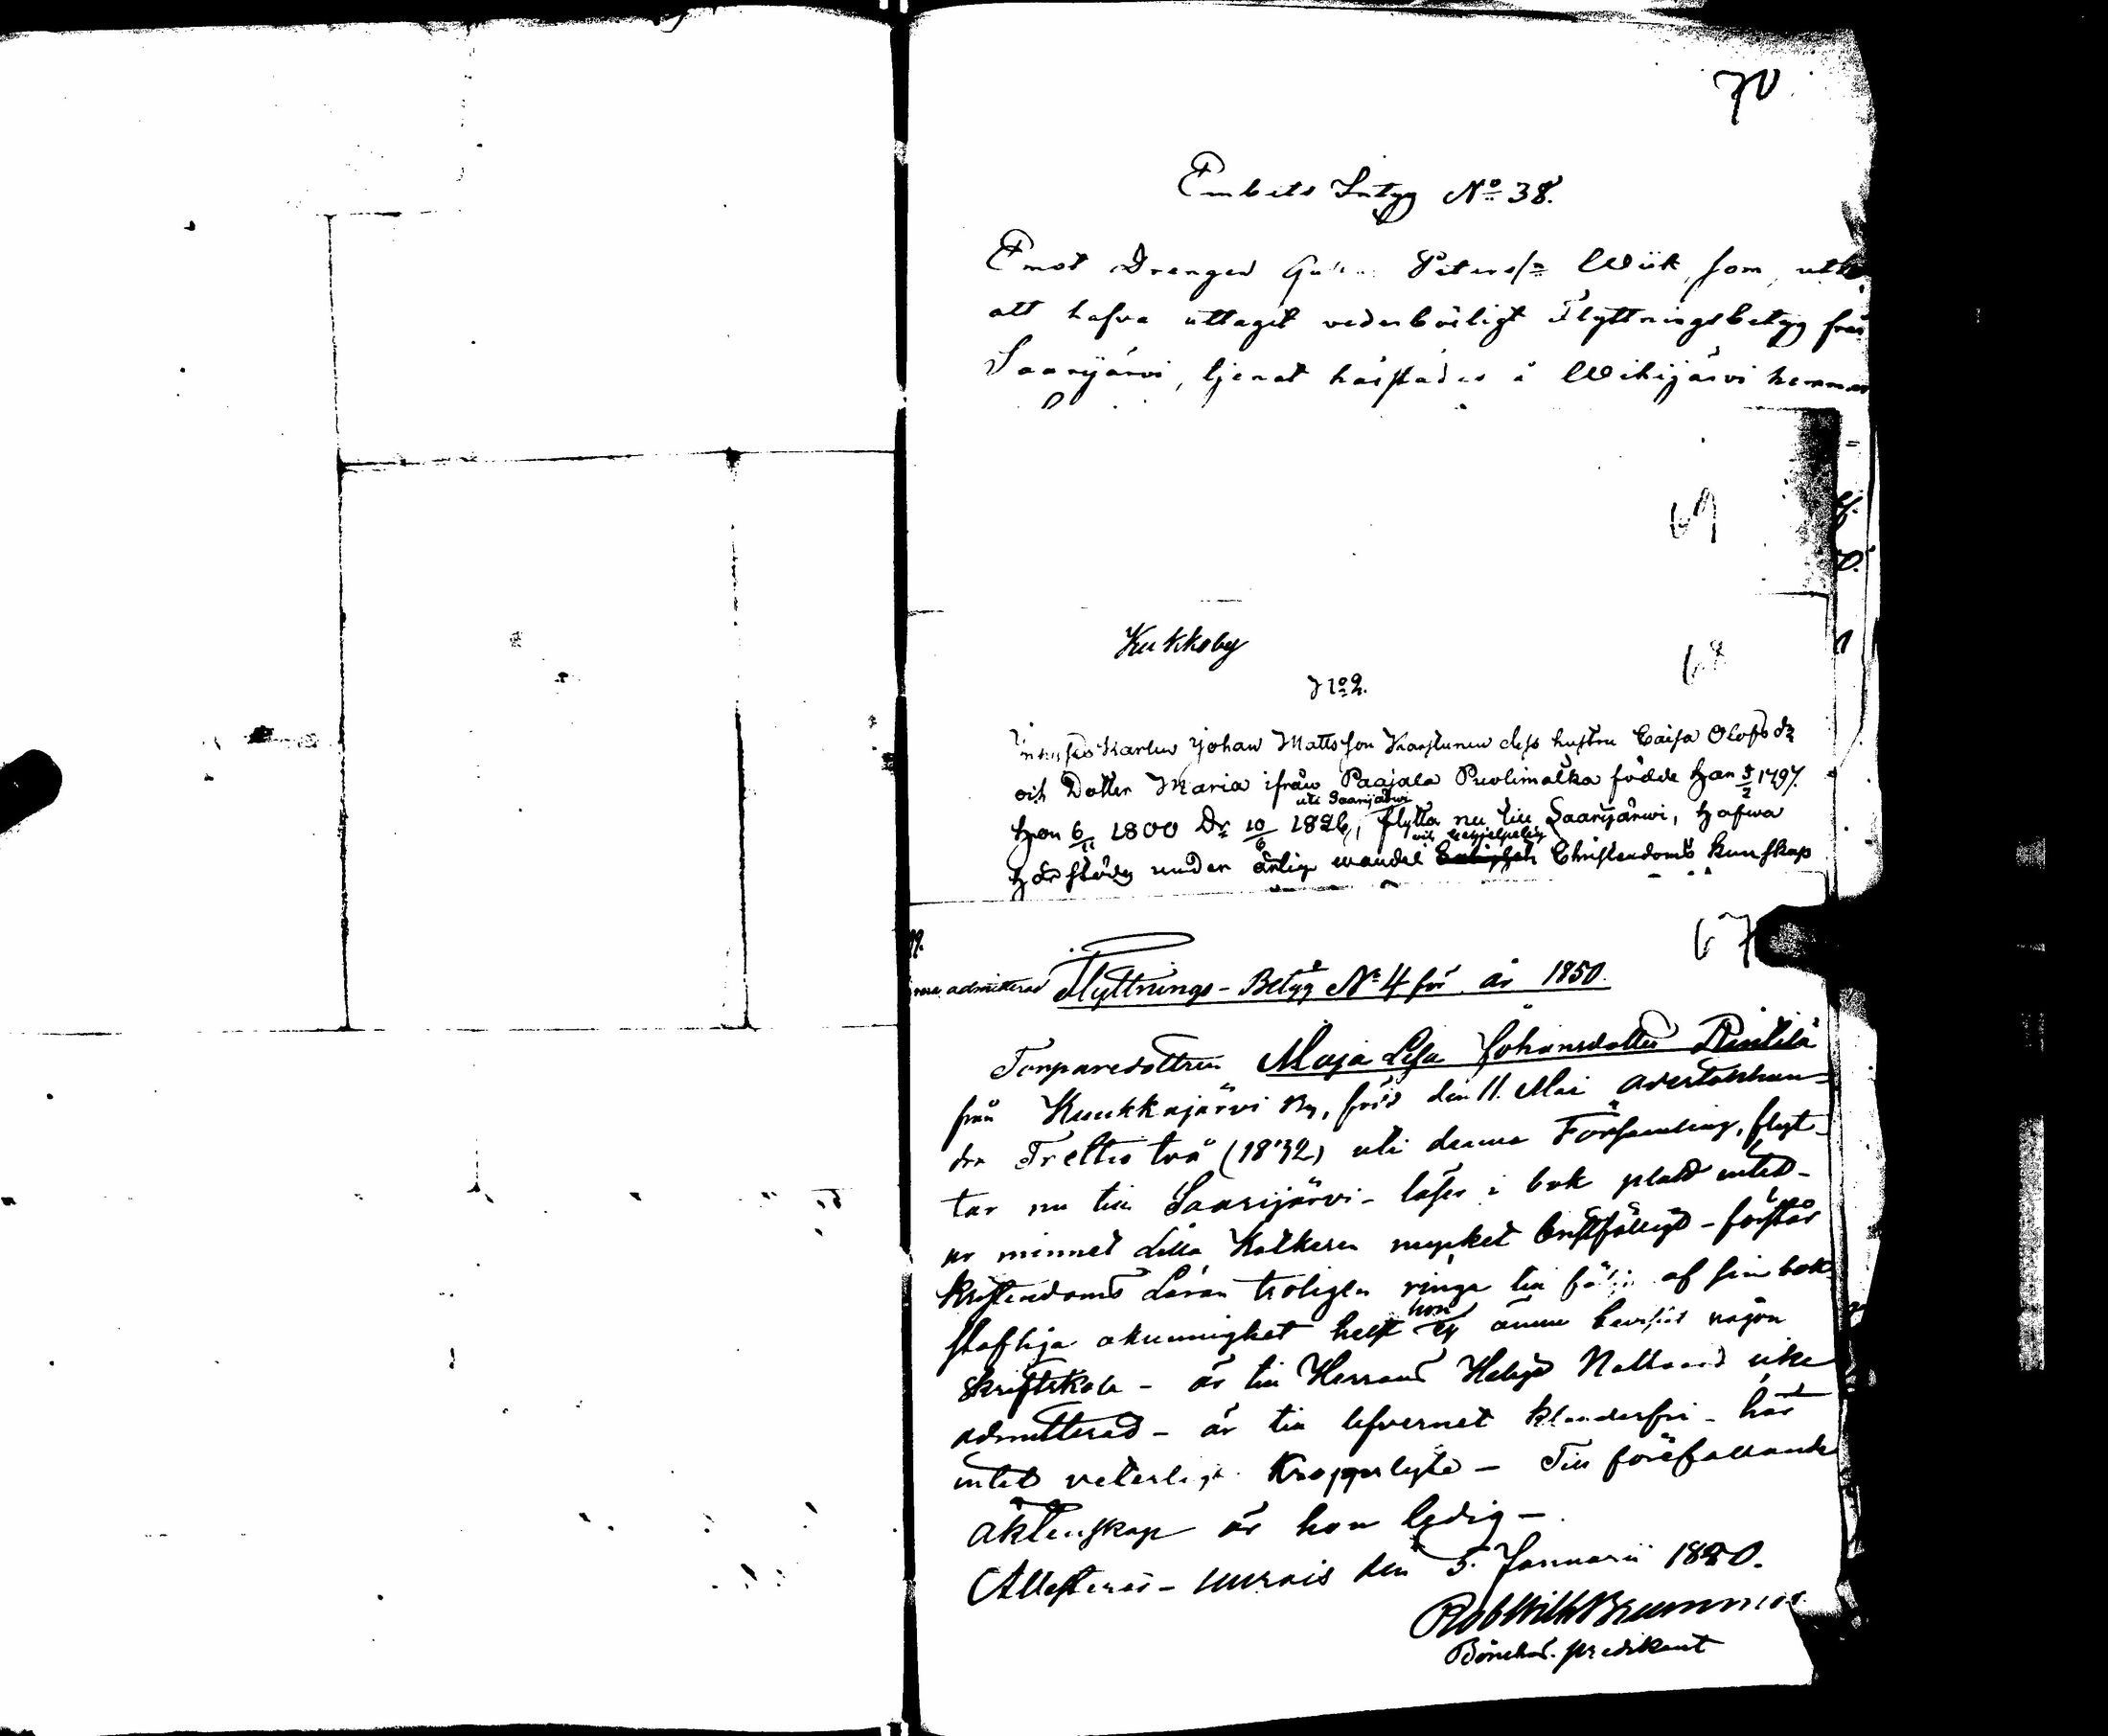 70
Embets Intyg No 38.
Emot Drengen Peterss: Wiik, som,
att hafva uttagit vederbörligt Flyttningsbetyg från
Saarijärvi, tjenat härstädes å Wehijärvi hemman
69
Kukkoby
68
No 2.
Johan Mattsson Karstunen dess hustru Caisa Olofsdr
och Dotter Maria ifrån Paajala Puolimatka födde Han 5/2 1797.
uti Saarijärwi
Hon 6/11 1800 Dr 10/6 1826, flytta nu till Saarijärwi, Hafwa
Härstädes under ärlig wandel Christendoms kunskap
67
admitterad Flyttnings-Betyg No 4 för år 1850.
Torparedottren Maja Lisa Johansdotter Penttilä
från Kuukkajärvi By, född den 11. Mai Adertonhun-
dra Trettio två (1832) uti denna Församling, flyt-
tar nu till Saarijärvi - läser i bok platt intet -
ur minnet Lilla Katkesen mycket bristfälligt - förstår
kristendoms Läran troligen ringa till följd af sin bok-
hon
stafliga okunnighet helst ej ännu bevistat någon
Skriftskola - är till Herrans Heliga Nattvard icke
admitterad - är till lefvernet klanderfri - har
intet veterligt Kroppslyte - Till förefallande
äktenskap är hon ledig -
Attesteras - Uurais den 5. Januarii 1850.
Rob Wilh Brummer
Bönehus. predikant